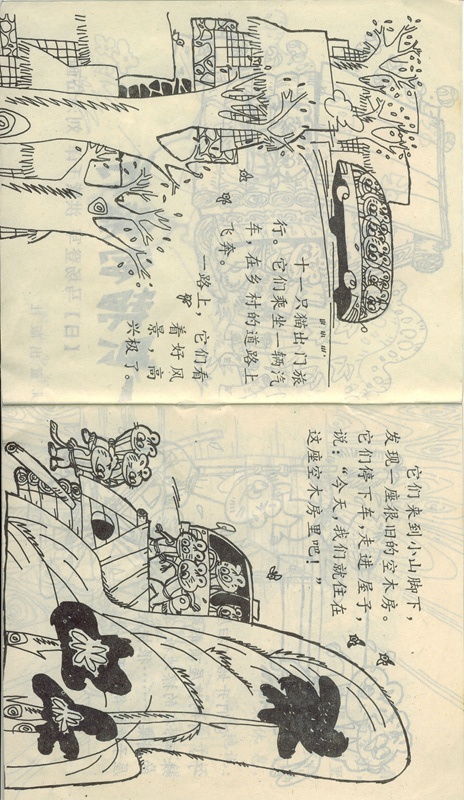 十一只猫出门旅
行。它们乘坐一辆汽
车，在乡村的道路上
飞奔。
一路上，它们看
着好风
景，高
兴极了。
它们来到小山脚下，
发现一座很旧的空木房。
它们停下车，走进屋子，
说：“今天，我们就住在
这座空木房里吧！”